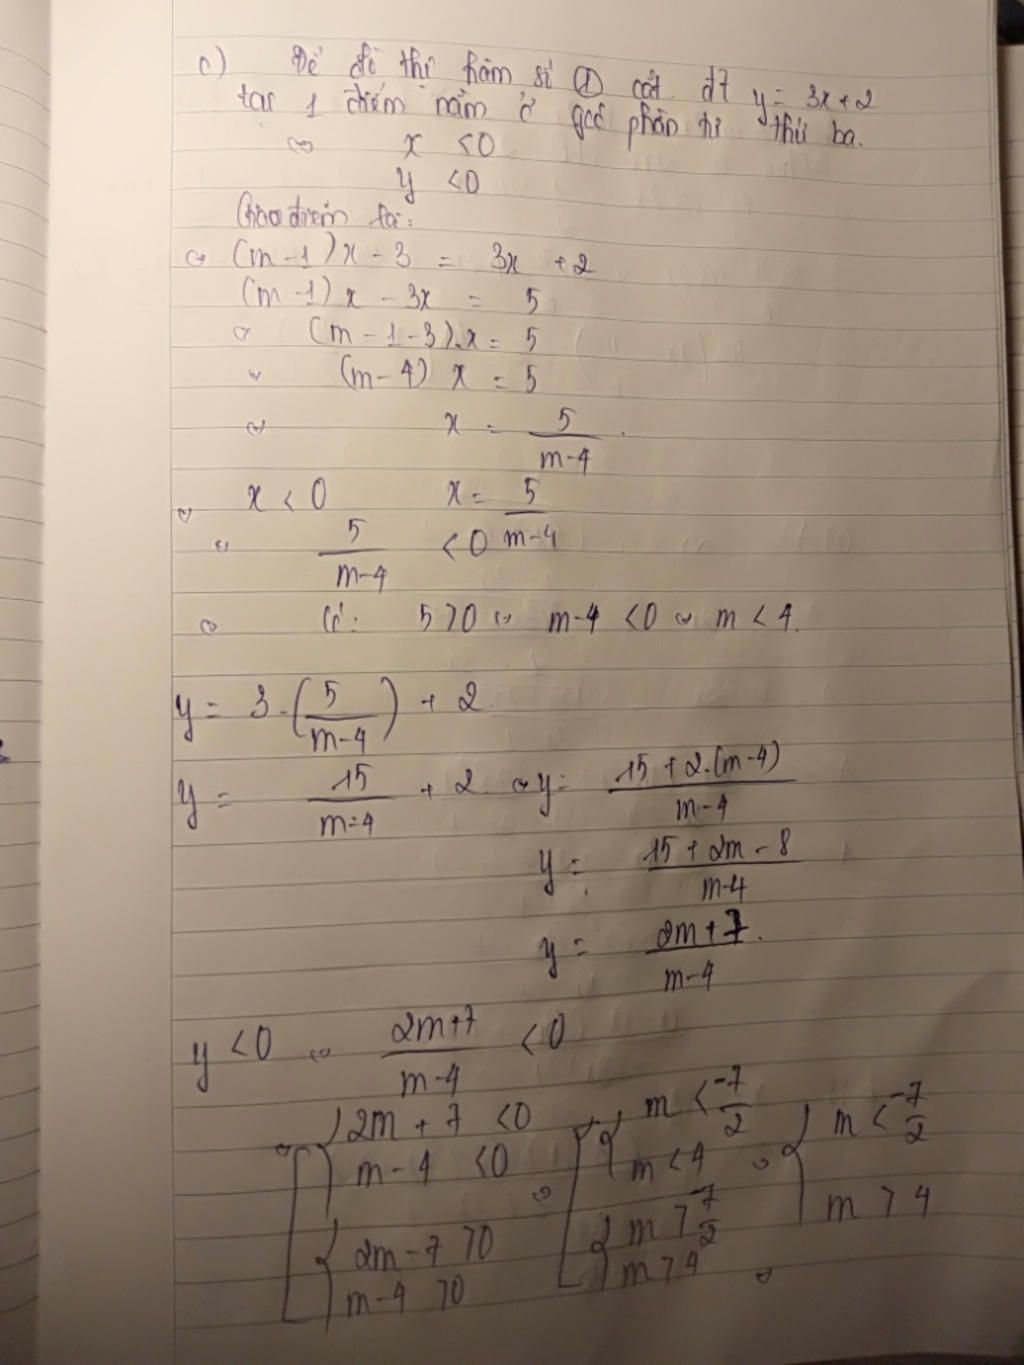 c) Để đồ thị hàm số ① cắt đt y = 3x + 2
tại 1 điểm nằm ở góc phần tư thứ ba.
⇔ x < 0
y < 0
Giao điểm là:
⇔ (m - 1)x - 3 = 3x + 2
(m - 1)x - 3x = 5
⇔ (m - 1 - 3).x = 5
⇔ (m - 4) x = 5
⇔ x = 5/(m-4).
⇔ x < 0 x = 5/(m-4)
⇔ 5/(m-4) < 0
⇔ Có: 5 > 0 ⇔ m-4 < 0 ⇔ m < 4.
y = 3.(5/(m-4)) + 2.
y = 15/(m-4) + 2. ⇔ y = (15 + 2.(m-4))/(m-4)
y = (15 + 2m - 8)/(m-4)
y = (2m + 7)/(m-4).
y < 0 ⇔ (2m+7)/(m-4) < 0
⇔ [ { 2m + 7 < 0 ⇔ [ { m < -7/2 ⇔ { m < -7/2
m - 4 < 0 m < 4 m > 4
{ 2m - 7 > 0 { m > -7/2
m - 4 > 0 m > 4 ⇔